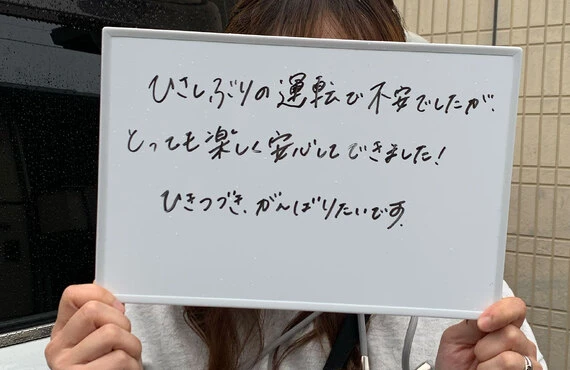 ひさしぶりの運転で不安でしたが、
とっても楽しく安心してできました!
ひきつづき、がんばりたいです。